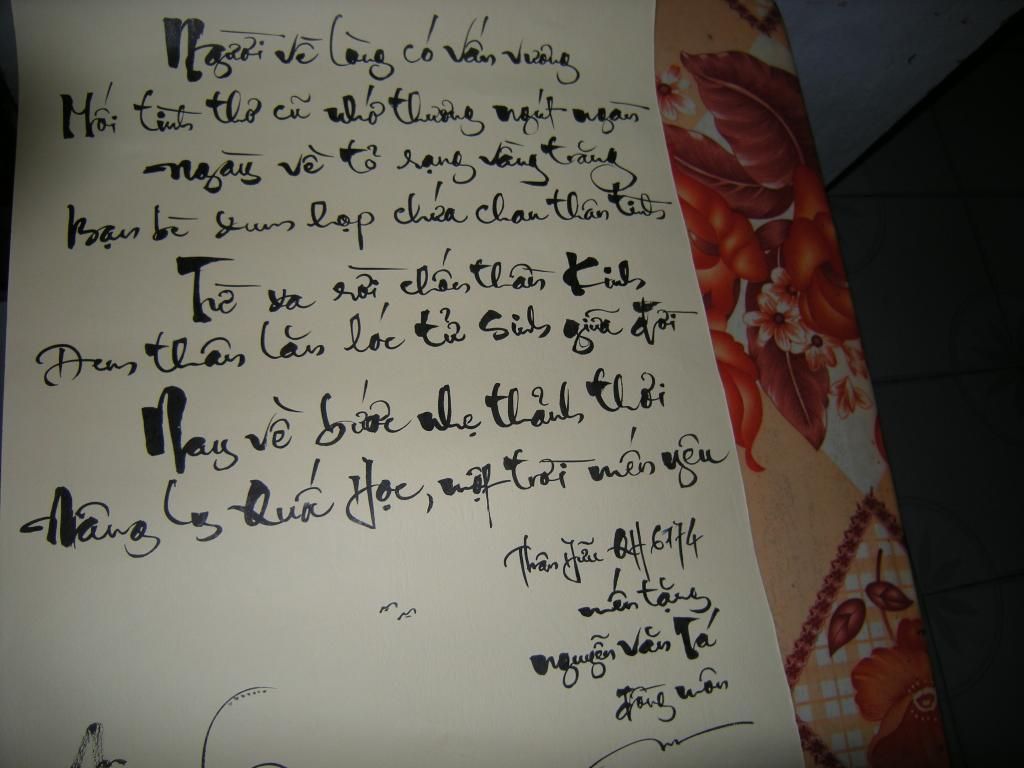 Người về lòng có vấn vương
Mối tình thơ cũ nhớ thương ngút ngàn
Ngày về tỏ rạng vầng trăng
Bạn bè sum họp chứa chan thân tình
Từ xa rồi chốn thần Kinh
Đem thân lăn lóc tử sinh giữa đời
Nay về bước nhẹ thảnh thơi
Nâng ly Quốc Học, một trời mến yêu
Thân Hữu QH 6774
mến tặng
Nguyễn Văn Tá
đồng môn